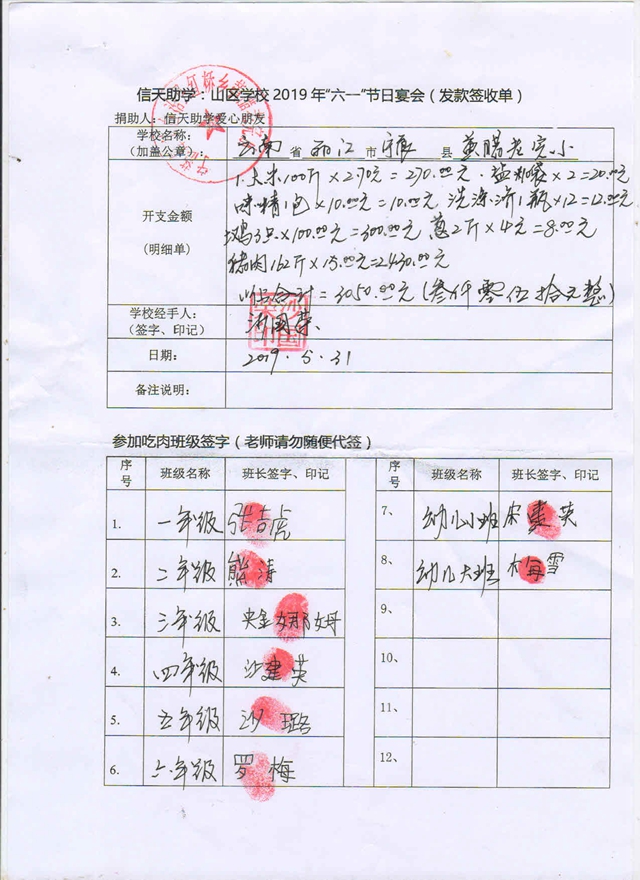 信天助学：山区学校 2019 年“六一”节日宴会（发款签收单）
捐助人：信天助学爱心朋友
学校名称：（加盖公章）： 云南 省 丽江 市 宁蒗 县 完小
开支金额（明细单）
1.大米100斤×2.70元=270.00元. 盐 ×2=20.00元
味精1包×10.00元=10.00元 洗涤济1瓶×12=12.00元
鸡3只×100.00元=300.00元 葱2斤×4元=8.00元
猪肉162斤×15.00元=2430.00元
以上合计=3050.00元(叁仟零伍拾元整)
学校经手人：（签字、印记） 国荣
日期： 2019.5.31
备注说明：
参加吃肉班级签字（老师请勿随便代签）
序号 班级名称 班长签字、印记 序号 班级名称 班长签字、印记
1. 一年级 张志虎 7、 幼儿小班 宋 英
2. 二年级 熊涛 8、 幼儿大班 雪
3. 三年级 娜姆 9、
4. 四年级 沙建英 10、
5. 五年级 沙璐 11、
6. 六年级 罗梅 12、